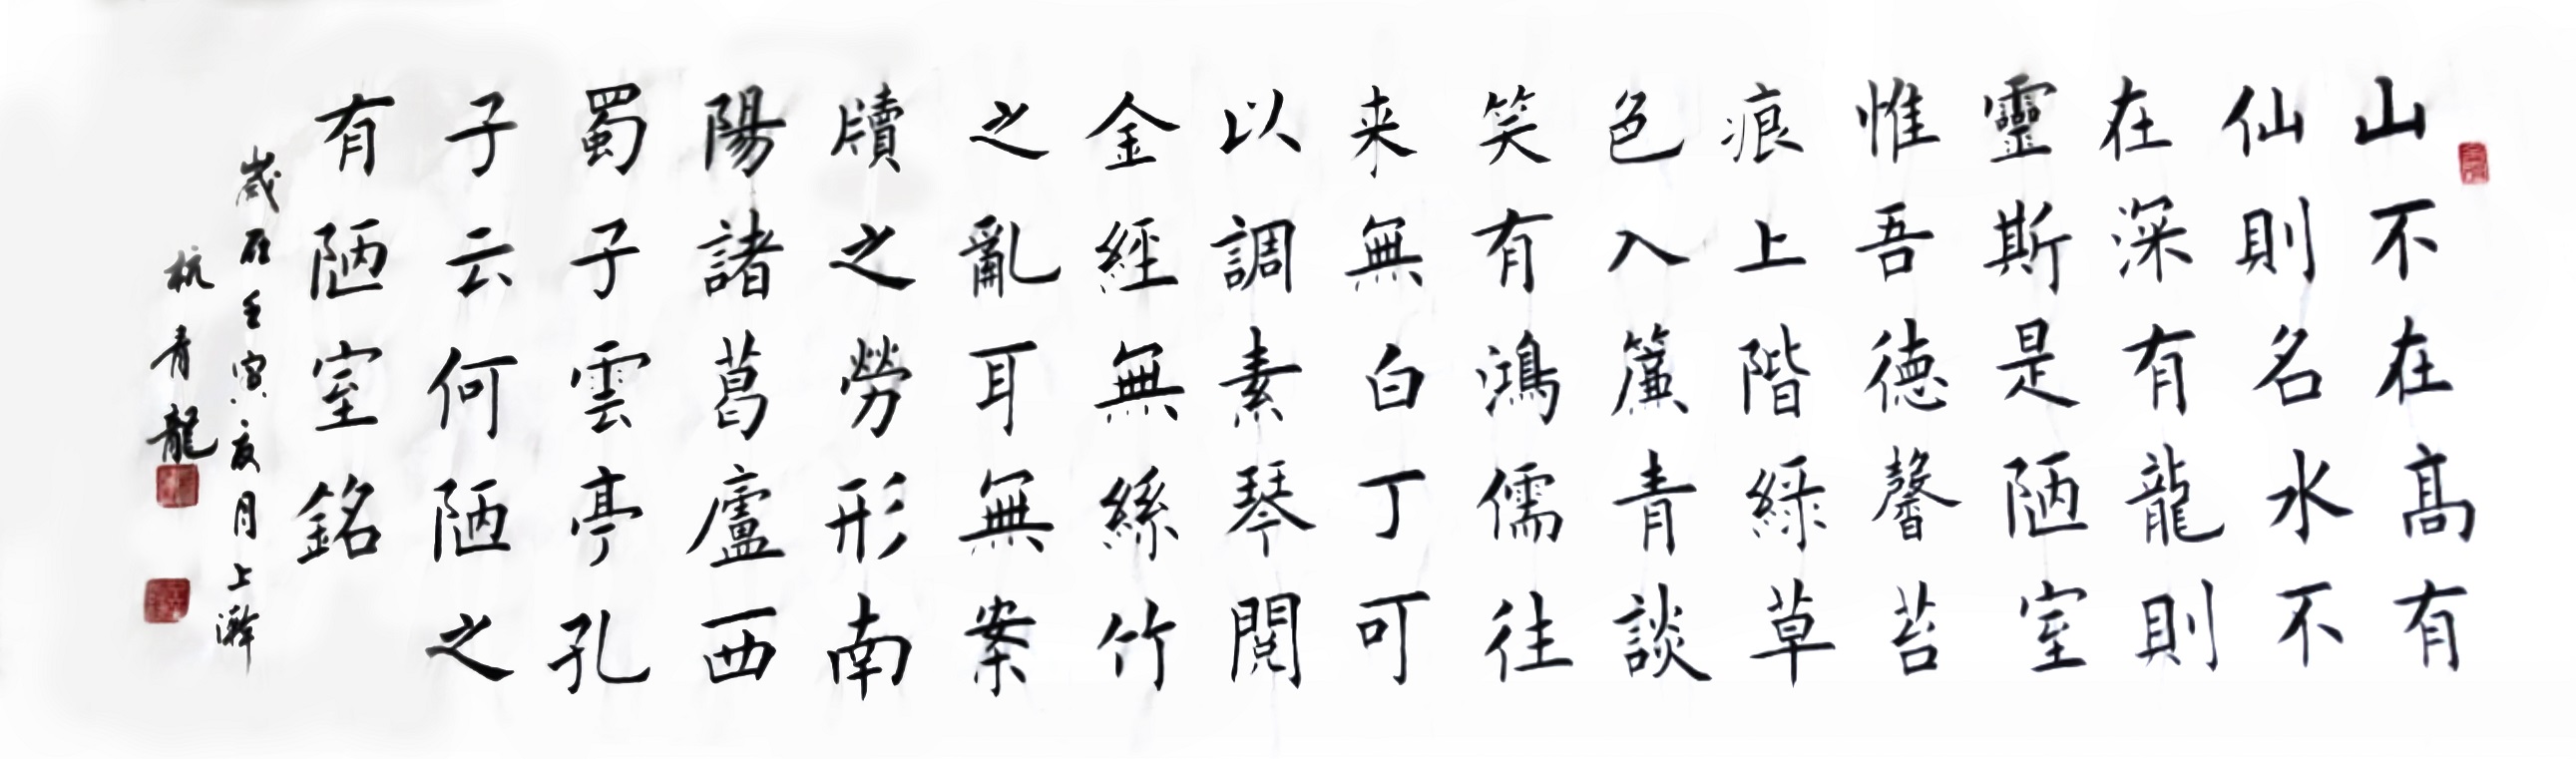 山不在髙有
仙則名水不
在深有龍則
靈斯是陋室
惟吾德馨苔
痕上階綠草
色入簾青談
笑有鴻儒往
来無白丁可
以調素琴閱
金經無絲竹
之亂耳無案
牘之勞形南
陽諸葛廬西
蜀子雲亭孔
子云何陋之
有陋室銘
歲在壬寅亥月上澣
杭青龍